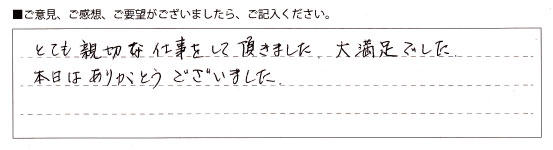 ■ご意見、ご感想、ご要望がございましたら、ご記入ください。
とても親切な仕事をして頂きました。大満足でした。
本日はありがとうございました。